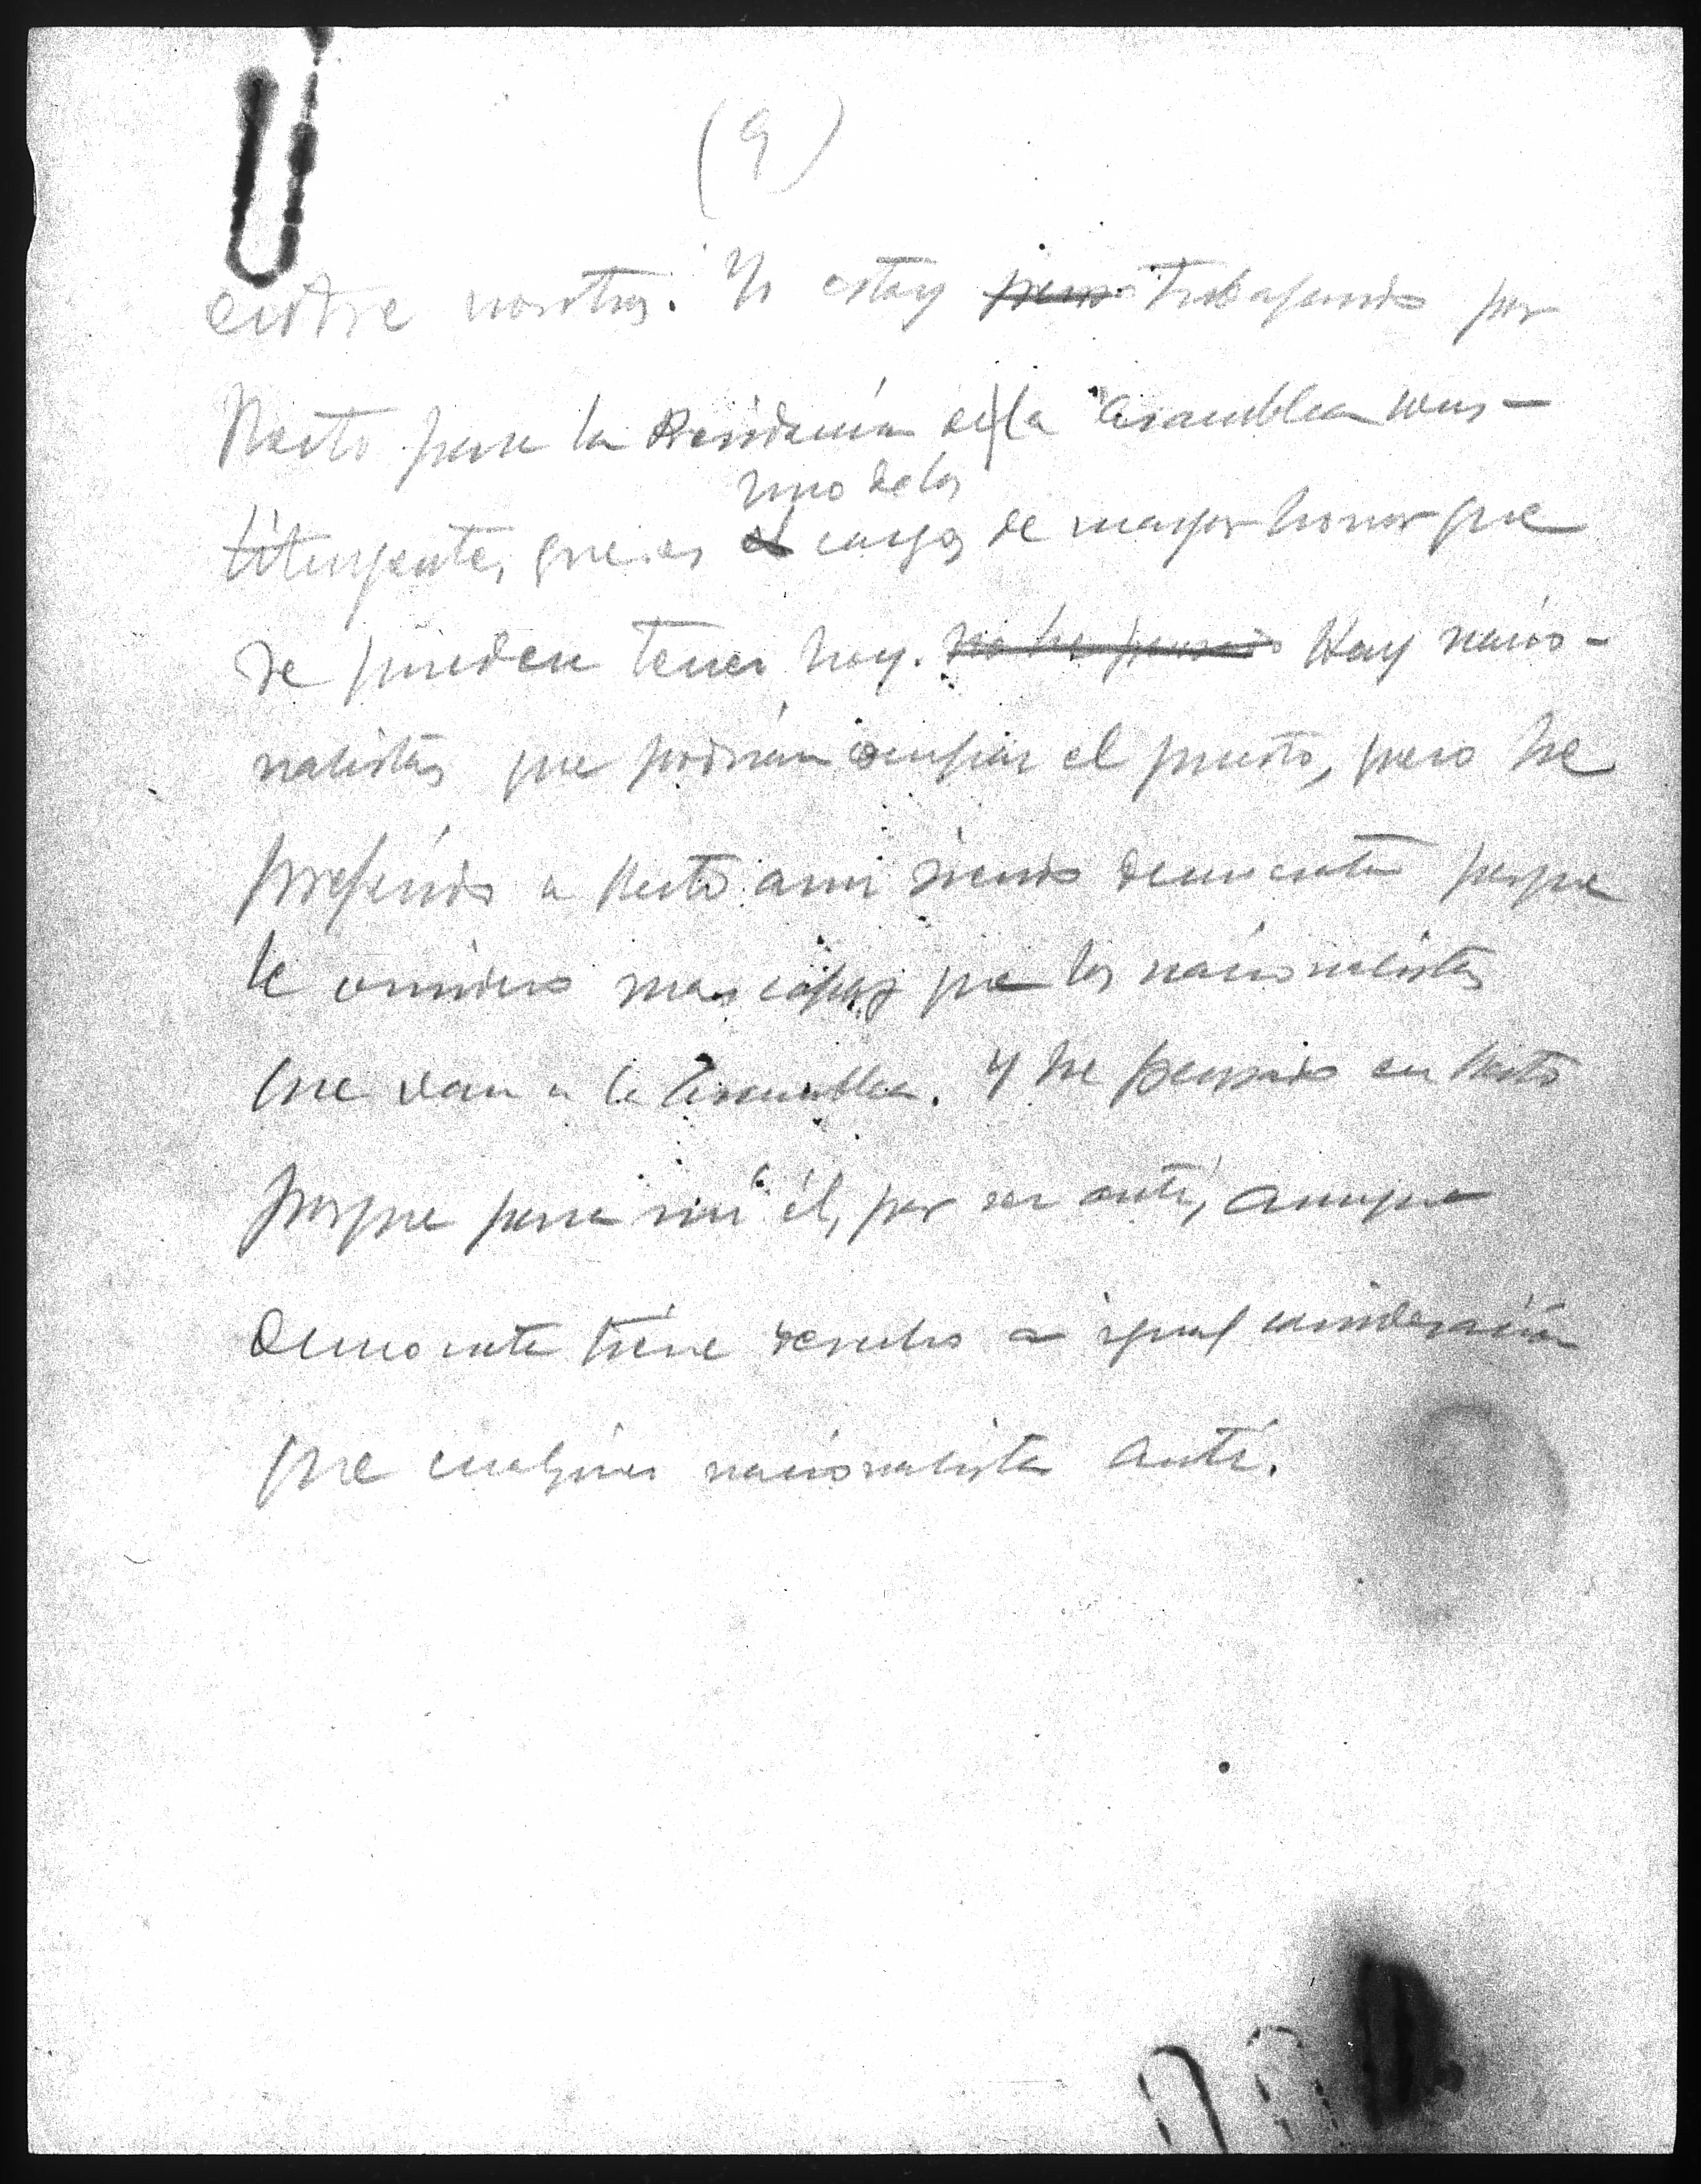 (9)
entre nosotros. Yo estoy trabajando por
Recto para la Presidencia de la Asamblea Cons-
uno de los
tituyente, que es el cargos de mayor honor que
se pueden tener hoy. no he pensado Hay nacio-
nalistas que podrían ocupar el puesto, pero he
preferido a Recto aun siendo democrata porque
le considero mas capaz que los nacionalistas
que van a la Asamblea. Y he pensado en Recto
porque para mi él, por ser anti, aunque
democrata tiene derecho a igual consideración
que cualquier nacionalista anti.